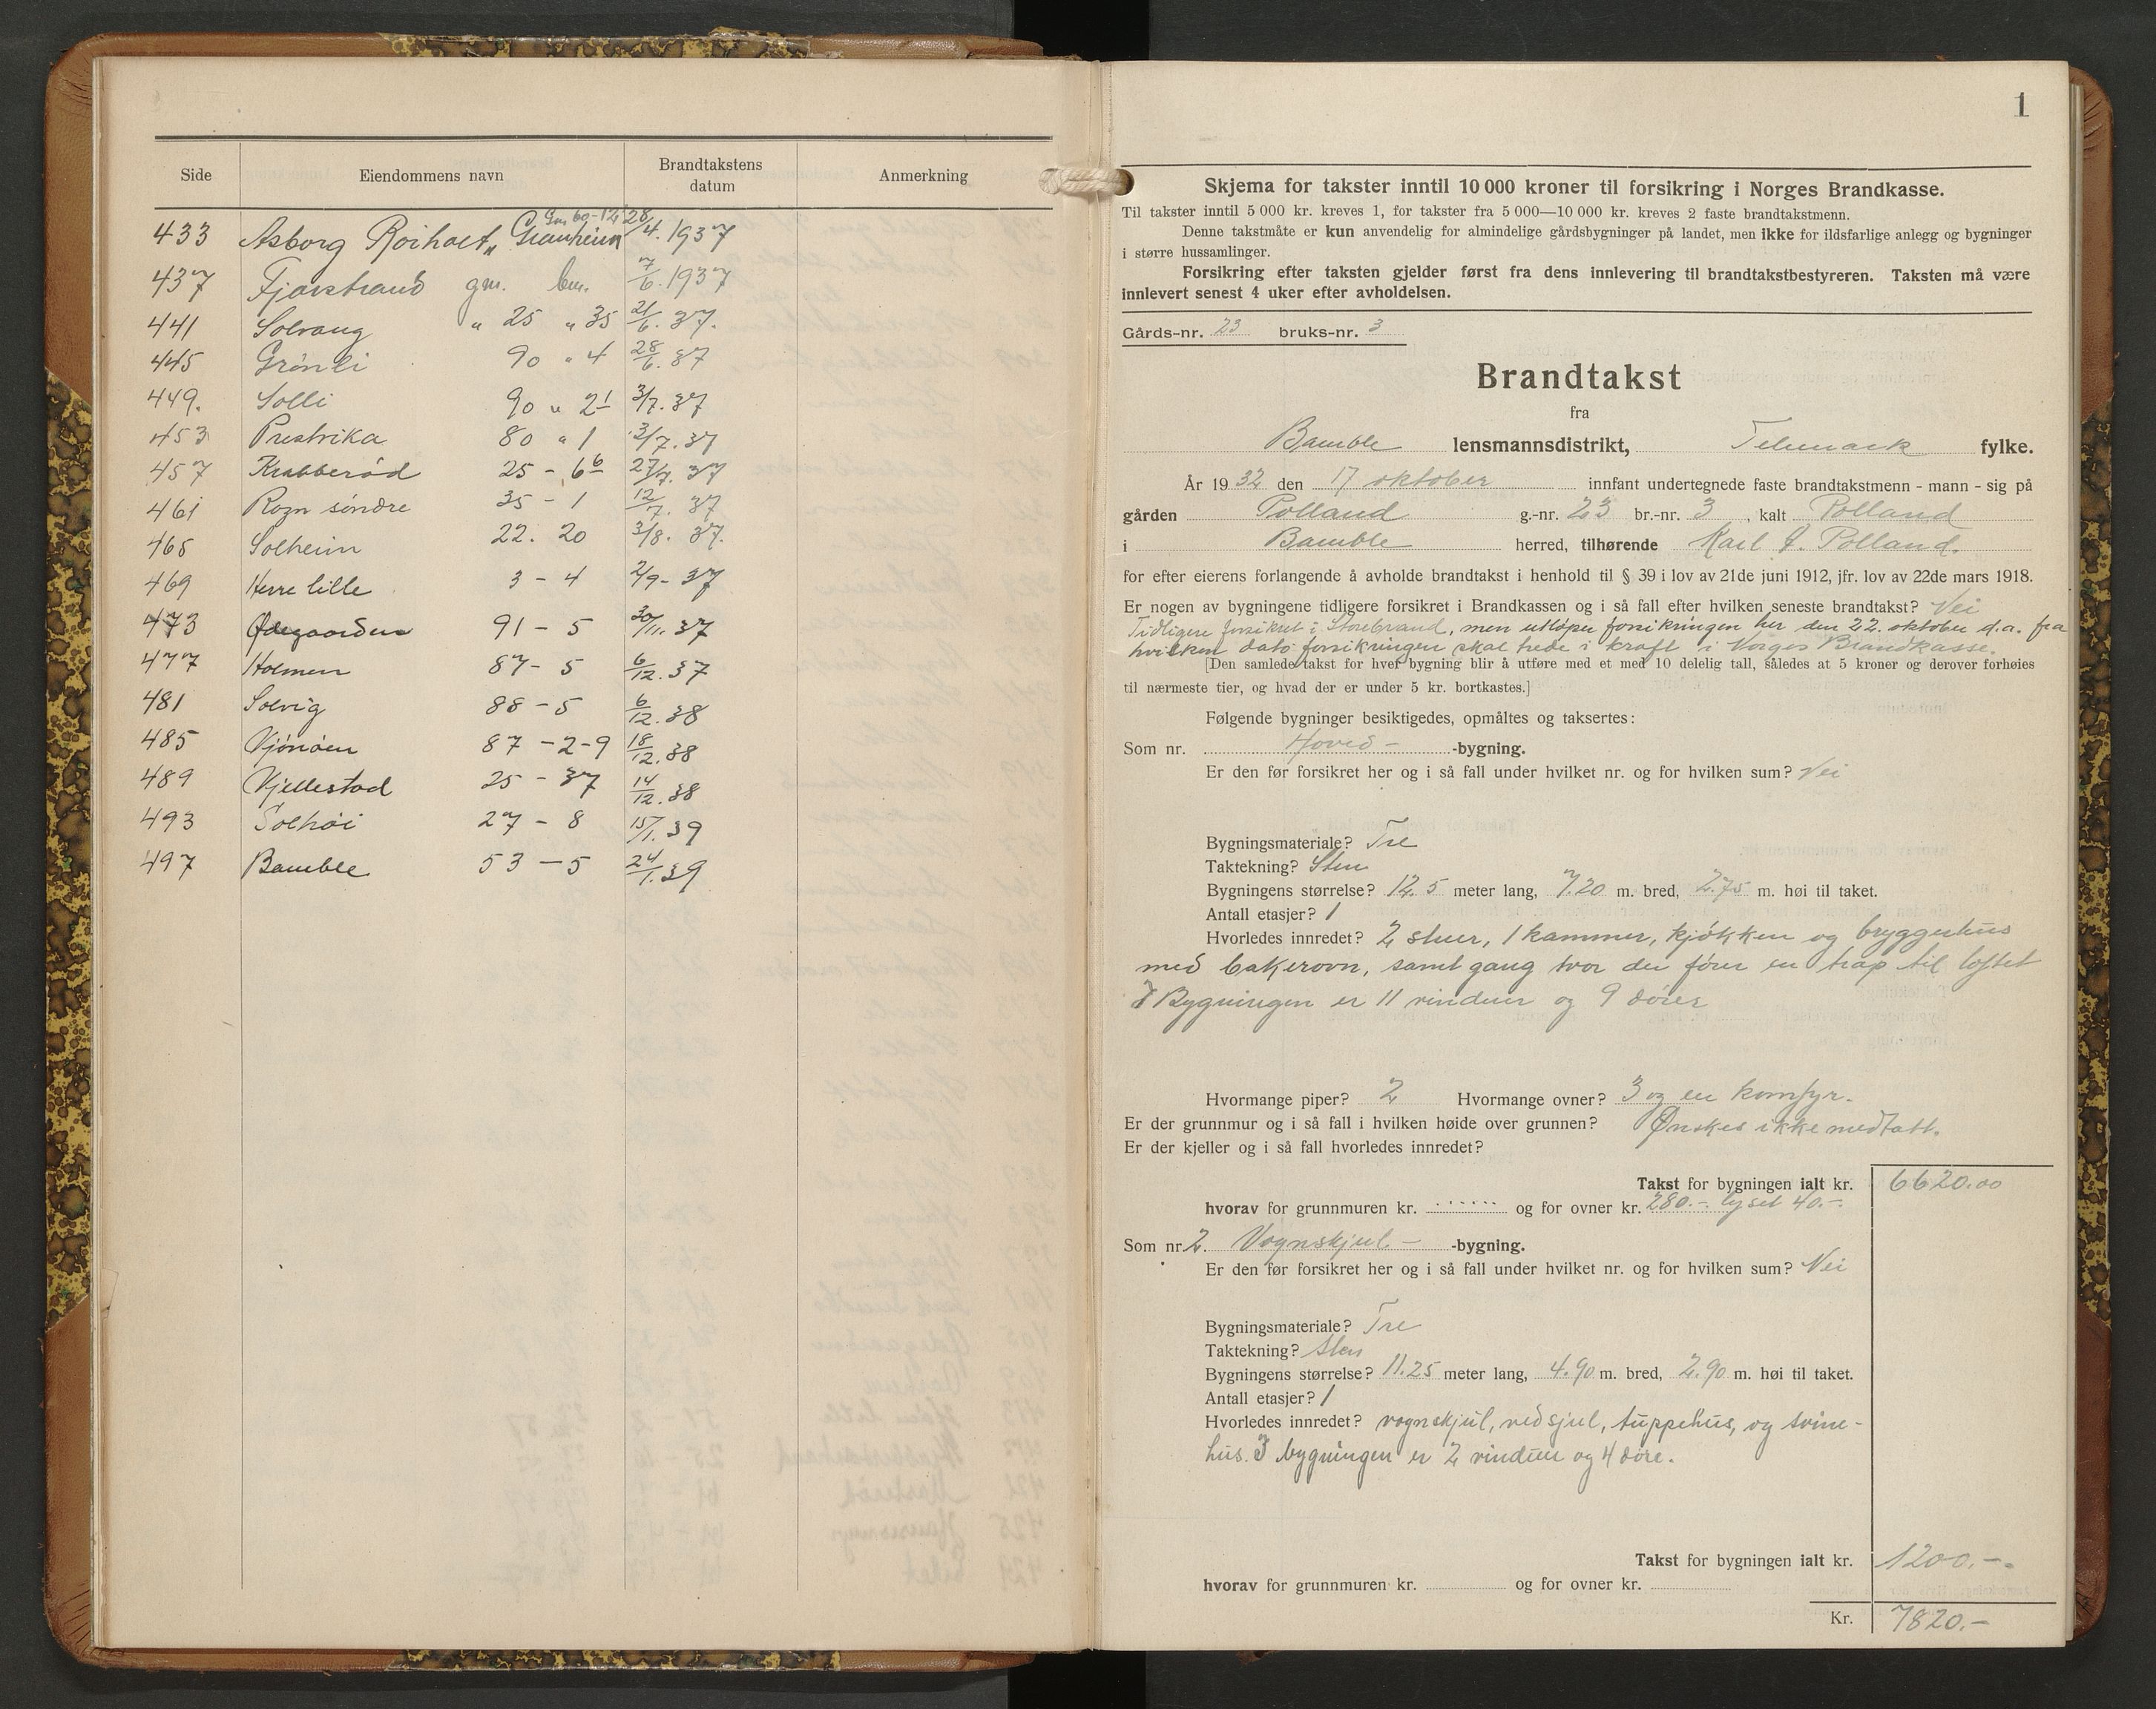 Side Eiendommens navn Brandtakstens datum Anmerkning
433 Asborg Roiholt, Granheim Gm 60-12 28/4. 1937
437 Fjorstrand gm. bm. 7/6. 1937
441 Solvang " 25 " 35 21/6. 37.
445 Grönli 90 " 4 28/6. 37
449. Solli 90 " 21 3/7. 37
453 Prestvika 80 " 1 3/7. 37
457 Krabberöd 25 - 66 27/7. 37
461 Rogn söndre 35 - 1 12/7. 37
465 Solheim 22. 20 3/8. 37.
469 Herre lille 3 - 4 2/9 - 37
473 Ødegaarden 91 - 5 30/11. 37
477 Holmen 87 - 5 6/12. 37
481 Solvig 88 - 5 6/12. 38
485 Kjönöen 87 - 2 - 9 18/12. 38
489 Kjellestad 25 - 37 14/12. 38
493 Solhöi 27 - 8 15/1. 39
497 Bamble 53 - 5 24/1. 39
1
Skjema for takster inntil 10 000 kroner til forsikring i Norges Brandkasse.
Til takster inntil 5 000 kr. kreves 1, for takster fra 5 000—10 000 kr. kreves 2 faste brandtakstmenn.
Denne takstmåte er kun anvendelig for almindelige gårdsbygninger på landet, men ikke for ildsfarlige anlegg og bygninger
i større hussamlinger.
Forsikring efter taksten gjelder først fra dens innlevering til brandtakstbestyreren. Taksten må være
innlevert senest 4 uker efter avholdelsen.
Gårds-nr. 23 bruks-nr. 3
Brandtakst
fra
Bamble lensmannsdistrikt, Telemark fylke.
År 1932 den 17 oktober innfant undertegnede faste brandtakstmenn - mann - sig på
gården Polland g.-nr. 23 br.-nr. 3, kalt Polland
i Bamble herred, tilhørende Karl J. Polland.
for efter eierens forlangende å avholde brandtakst i henhold til § 39 i lov av 21de juni 1912, jfr. lov av 22de mars 1918.
Er nogen av bygningene tidligere forsikret i Brandkassen og i så fall efter hvilken seneste brandtakst? Nei
Tidligere forsikret i Storebrand, men utlöper forsikringen her den 22. oktober d.a. fra
hvilken dato forsikringen skal trede i kraft i Norges Brandkasse.
[Den samlede takst for hver bygning blir å utføre med et med 10 delelig tall, således at 5 kroner og derover forhøies
til nærmeste tier, og hvad der er under 5 kr. bortkastes.]
Følgende bygninger besiktigedes, opmåltes og taksertes:
Som nr. Hoved- -bygning.
Er den før forsikret her og i så fall under hvilket nr. og for hvilken sum? Nei
Bygningsmateriale? Tre
Taktekning? Sten
Bygningens størrelse? 12.5 meter lang, 7.20 m. bred, 2.75 m. høi til taket.
Antall etasjer? 1
Hvorledes innredet? 2 stuer, 1 kammer, kjökken og bryggerhus
med bakerovn, samt gang hvor der förer en trap til loftet
I Bygningen er 11 vinduer og 9 dörer
Hvormange piper? 2 Hvormange ovner? 3 og en komfyr.
Er der grunnmur og i så fall i hvilken høide over grunnen? Ønskes ikke medtatt.
Er der kjeller og i så fall hvorledes innredet?
Takst for bygningen ialt kr. 6620.00
hvorav for grunnmuren kr. ..... og for ovner kr. 280.- lyset 40.-
Som nr 2. Vognskjul- -bygning.
Er den før forsikret her og i så fall under hvilket nr. og for hvilken sum? Nei
Bygningsmateriale? Tre
Taktekning? Sten
Bygningens størrelse? 11.25 meter lang, 4.90 m. bred, 2.90 m. høi til taket.
Antall etasjer? 1
Hvorledes innredet? vognskjul, vedsjul, tuppehus, og svine-
hus. I bygningen er 2 vinduer og 4 döre.
Takst for bygningen ialt kr. 1200.-
hvorav for grunnmuren kr. og for ovner kr.
Kr. 7820.-